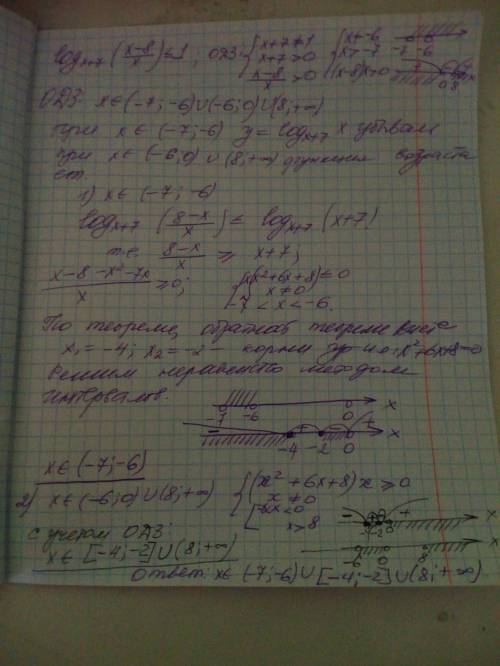 log_{x+7} (\frac{x-8}{x}) ≤ 1; ОДЗ: { x+7≠1 x+7>0 \frac{x-8}{x}>0 { x≠-6 x>-7 (x-8)x>0
ОДЗ: x∈(-7;-6)∪(-6;0)∪(8;+∞)
при x∈(-7;-6) y=log_{x+7} x убывает
при x∈(-6;0)∪(8;+∞) функция возраста
ет.
1) x∈(-7;-6)
log_{x+7} (\frac{8-x}{x}) ≤ log_{x+7} (x+7)
т.е. \frac{8-x}{x} ≥ x+7;
\frac{x-8-x²-7x}{x} ≥0; { x(x²+6x+8)≤0 x≠0 -7<x<-6.
По теореме, обратной теореме Виета
x₁=-4; x₂=-2 корни ур-ия: x²+6x+8=0
Решим неравенство методом
интервалов.
-7 -6 0 x
- + - + -4 -2 0 x
x∈(-7;-6)
2) x∈(-6;0)∪(8;+∞) { (x²+6x+8)x≥0 x≠0 [ -6<x<0 x>8
с учетом ОДЗ:
x∈[-4;-2]∪(8;+∞)
-6 0 8 x
Ответ: x∈(-7;-6)∪[-4;-2]∪(8;+∞)